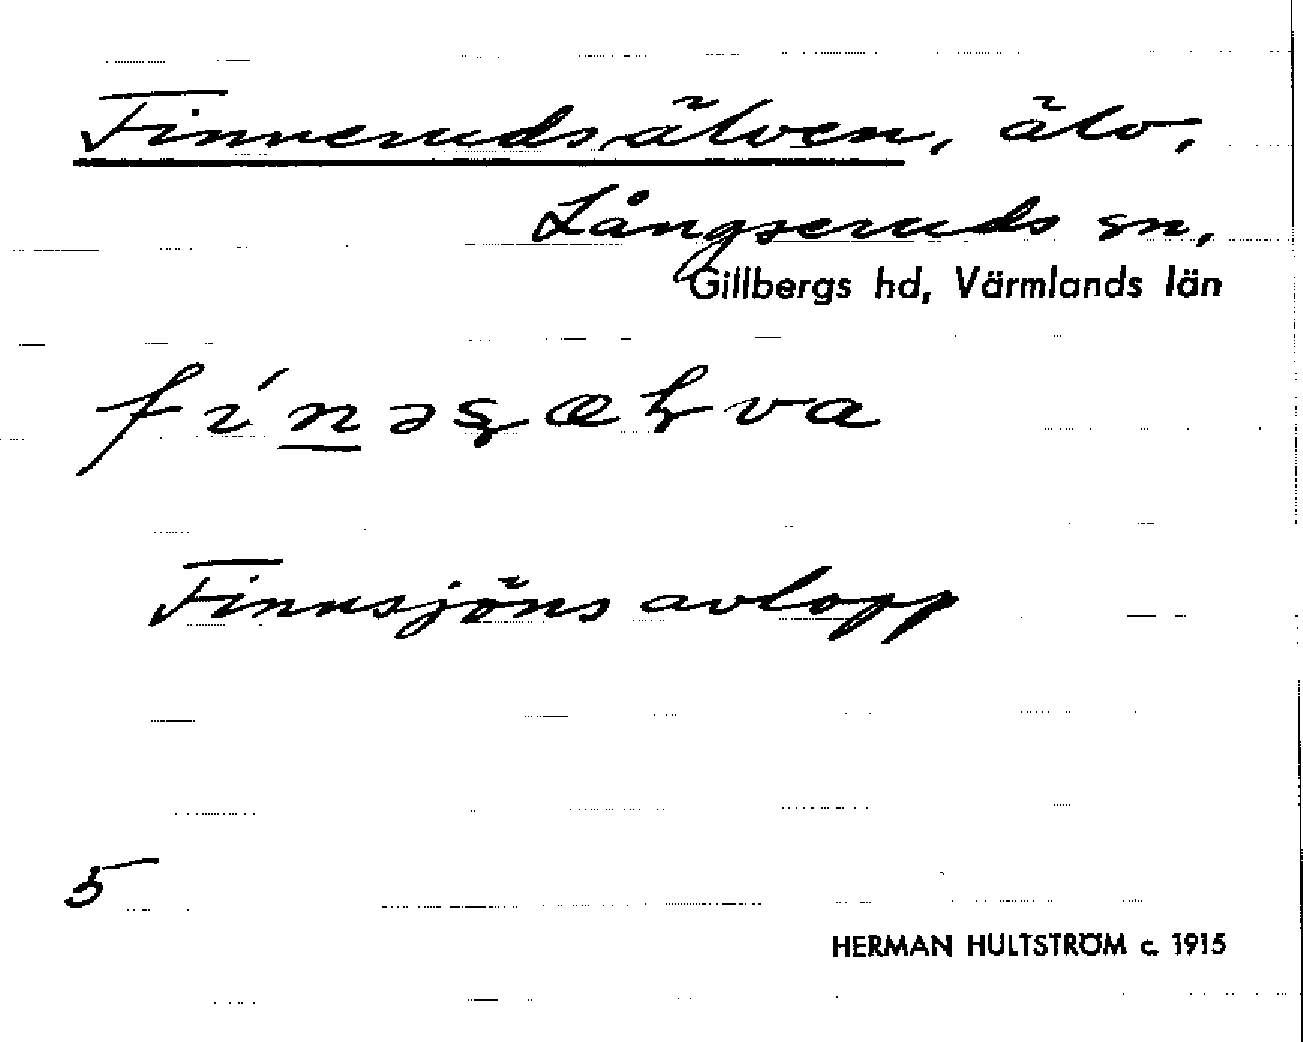 Finnerudsälven, älv,
Långseruds sn,
Gillbergs hd, Värmlands län
Finnsjöns avlopp
5
HERMAN HULTSTRÖM c. 1915